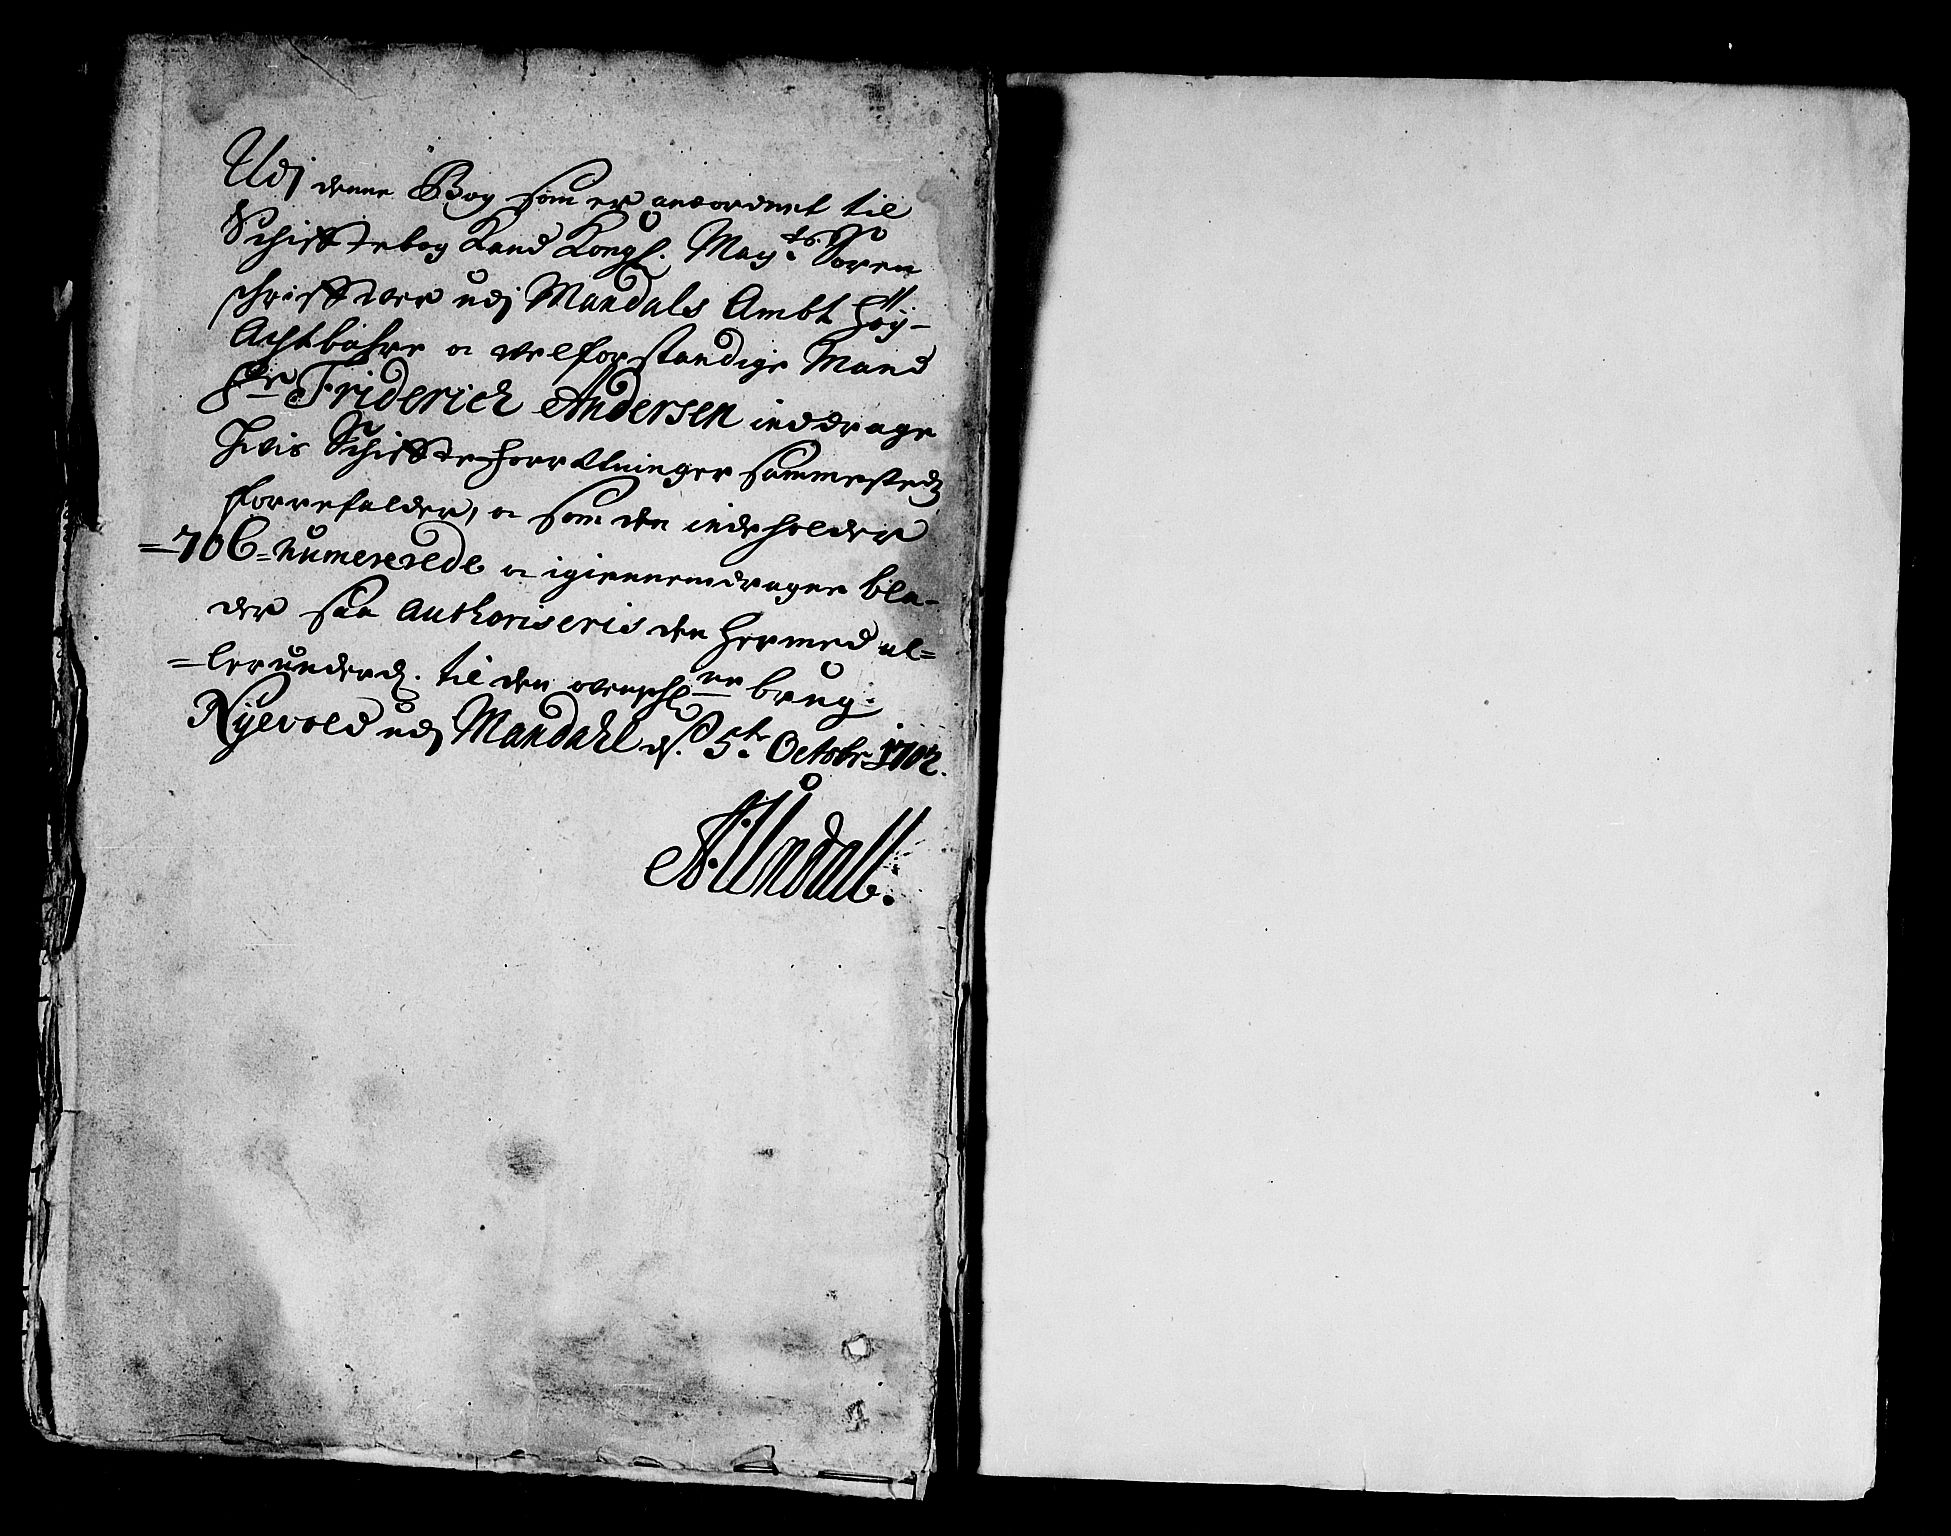 Udj denne Bog som er anordnet til
Schifftebog Kand Kongl. Mayts. Soren
schriffver udj Mandals Ambt Höy-
Achtbahre oc velforstandige Mand
Hr Friderich Andersen inddrage
Hvis Schiffteforretninger sammestedz
forrefalder, oc som den indeholder
=706= numererede oc igiennemdragne bla-
der saa Authoriseris den hermed al=
=lerunderd. til den brug.
Nyevold udj Mandahl ds. 5te Octobr 1702.